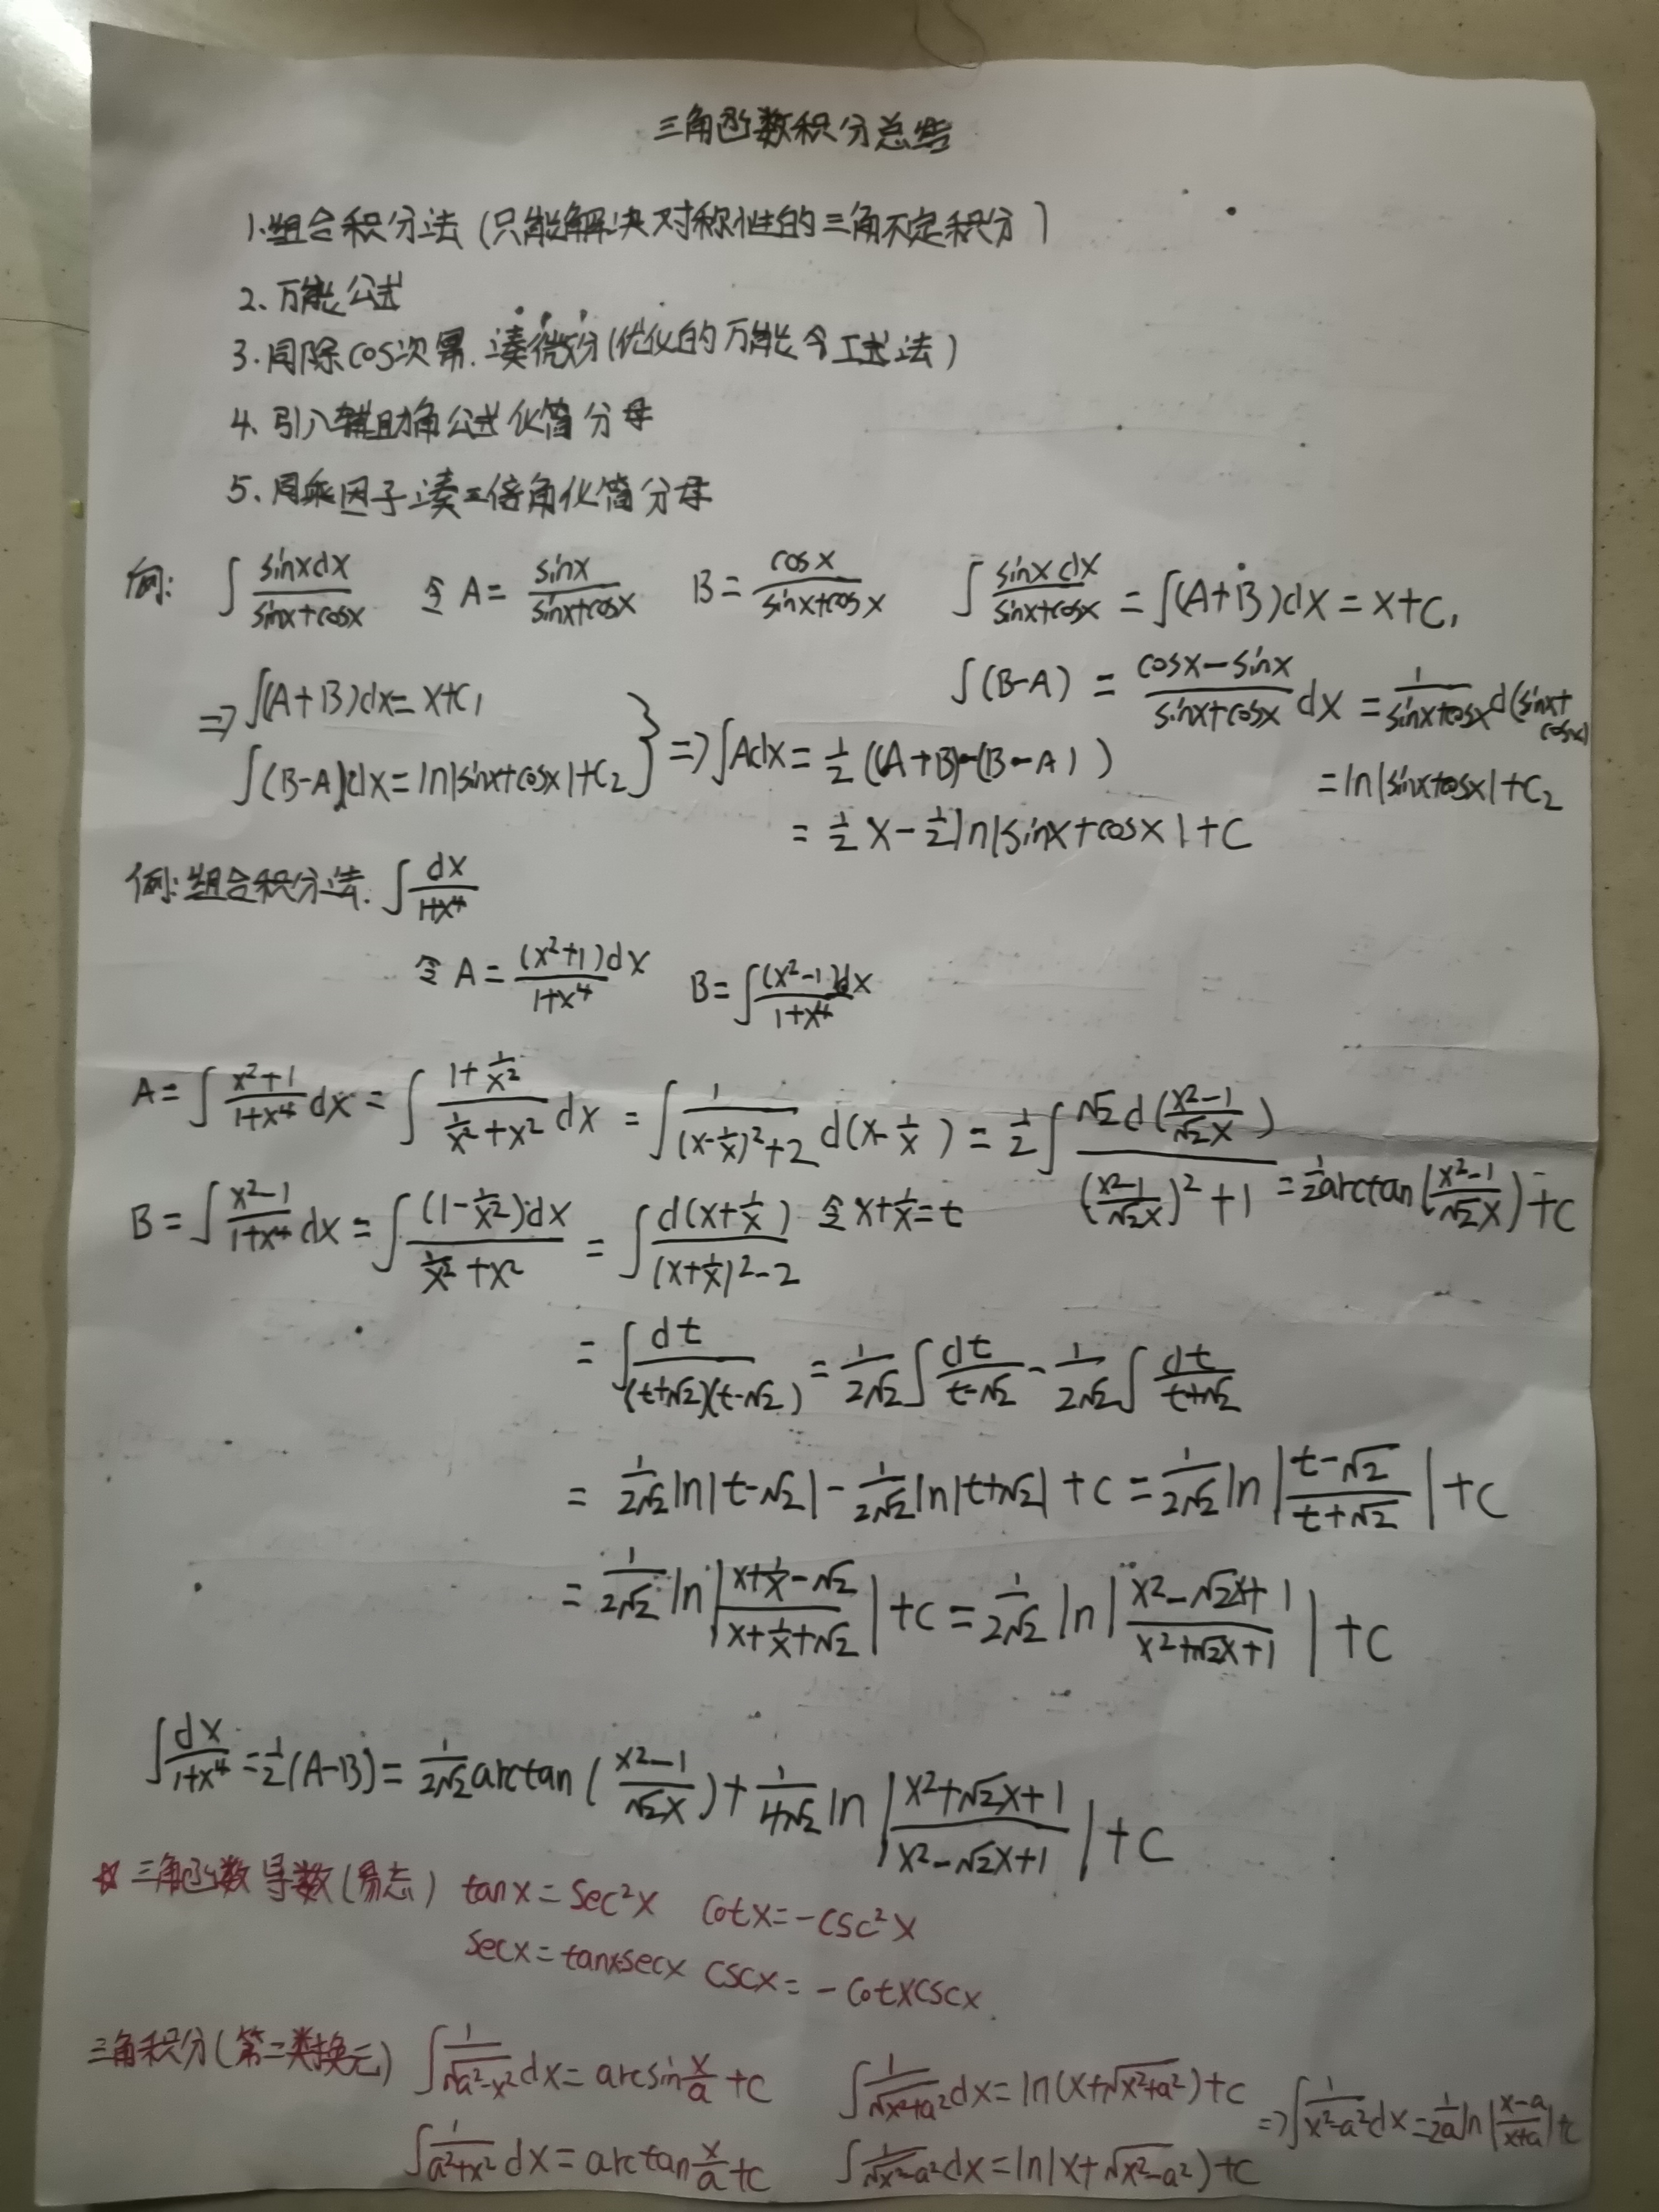 三角函数积分总结
1.组合积分法(只能解决对称性的三角不定积分)
2、万能公式
3.同除cos次幂.凑微分(优化的万能公式法)
4、引入辅助角公式化简分母
5、同乘因子凑二倍角化简分母
例: ∫ sinxdx/(sinx+cosx) 令 A = sinx/(sinx+cosx) B = cosx/(sinx+cosx) ∫ sinxdx/(sinx+cosx) = ∫(A+B)dx = x+C₁
∫(B-A) = (cosx-sinx)/(sinx+cosx) dx = 1/(sinx+cosx) d(sinx+cosx)
= ln|sinx+cosx|+C₂
⇒ ∫(A+B)dx = x+C₁
∫(B-A)dx = ln|sinx+cosx|+C₂ } ⇒ ∫Adx = 1/2((A+B)-(B-A))
= 1/2 x - 1/2 ln|sinx+cosx|+C
例:组合积分法. ∫ dx/(1+x⁴)
令 A = (x²+1)dx/(1+x⁴) B = ∫ (x²-1)dx/(1+x⁴)
A = ∫ (x²+1)/(1+x⁴) dx = ∫ (1+1/x²)/(1/x²+x²) dx = ∫ 1/((x-1/x)²+2) d(x-1/x) = 1/2 ∫ √2 d((x²-1)/(√2x))/(((x²-1)/(√2x))²+1) = 1/2 arctan((x²-1)/(√2x))+C
B = ∫ (x²-1)/(1+x⁴) dx = ∫ (1-1/x²)dx/(1/x²+x²) = ∫ d(x+1/x)/((x+1/x)²-2) 令 x+1/x=t
= ∫ dt/((t+√2)(t-√2)) = 1/(2√2) ∫ dt/(t-√2) - 1/(2√2) ∫ dt/(t+√2)
= 1/(2√2) ln|t-√2| - 1/(2√2) ln|t+√2| + C = 1/(2√2) ln|(t-√2)/(t+√2)| + C
= 1/(2√2) ln|(x+1/x-√2)/(x+1/x+√2)| + C = 1/(2√2) ln|(x²-√2x+1)/(x²+√2x+1)| + C
∫ dx/(1+x⁴) = 1/2(A-B) = 1/(2√2) arctan((x²-1)/(√2x)) + 1/(4√2) ln|(x²+√2x+1)/(x²-√2x+1)| + C
☆ 三角函数导数(易忘) tanx = sec²x cotx = -csc²x
secx = tanxsecx cscx = -cotxcscx
三角积分(第二类换元) ∫ 1/√(a²-x²) dx = arcsin x/a + C ∫ 1/√(x²+a²) dx = ln(x+√(x²+a²))+C ⇒ ∫ 1/(x²-a²) dx = 1/(2a) ln|(x-a)/(x+a)|+C
∫ 1/(a²+x²) dx = arctan x/a + C ∫ 1/√(x²-a²) dx = ln|x+√(x²-a²)) + C